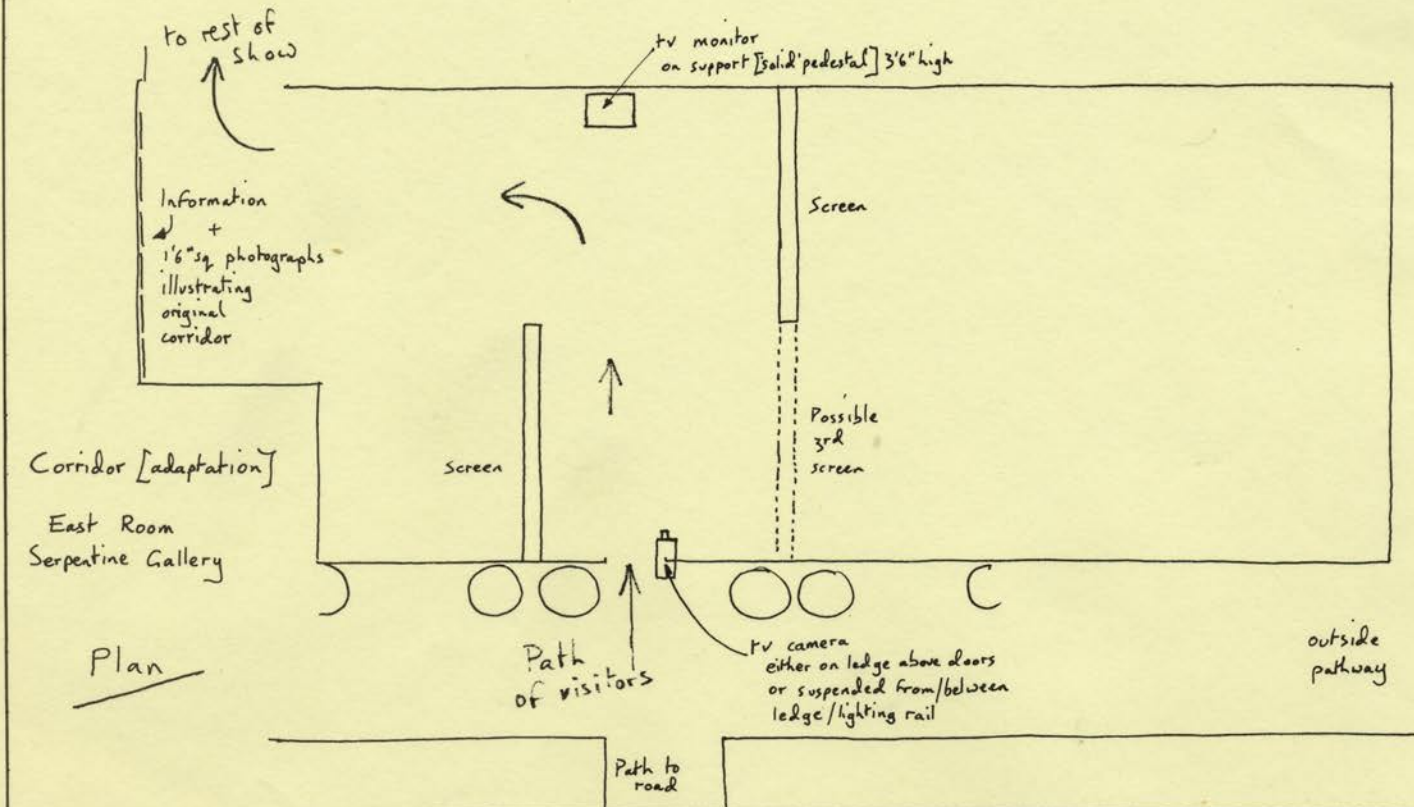 to rest of
show
tv monitor
on support [solid pedestal] 3'6" high
Information
+
1'6" sq photographs
illustrating
original
corridor
Screen
Corridor [adaptation]
East Room
Serpentine Gallery
Screen
Possible
3rd
screen
Plan
Path
of visitors
tv camera
either on ledge above doors
or suspended from/between
ledge/lighting rail
outside
pathway
Path to
road